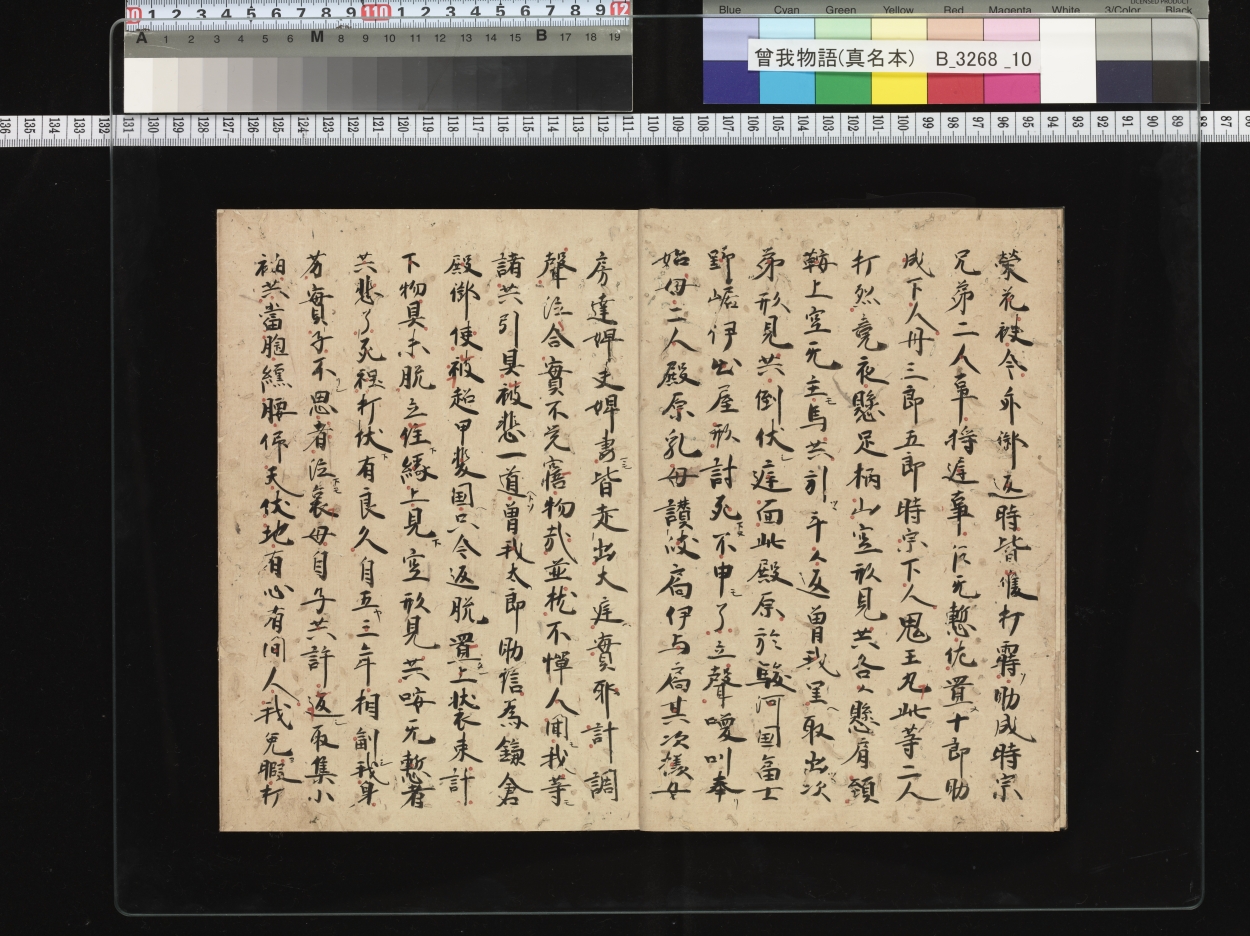 曾我物語(真名本) B_3268_10
Blue Cyan Green Yellow Red Magenta White 3/Color Black
榮花被今亦御返時皆復打霽助成時宗
兄弟二人事將遲事仁无慙佐置十郎助
成下人丹三郎五郎時宗下人鬼王丸此等二人
打烈竟夜懸足柄山空形見共各〻懸肩領
鞍上空无主馬共引斗久返曽我里取出次
弟形見共倒伏庭面此殿原於駿河国冨士
野崛伊出屋形討死不申了立聲嗳叫奉
始母二人殿原乳母讃岐扇伊与扇其次樣女
房達婢夫婢妻皆走出大庭實邪計調
聲泣合實不覚寤物哉並枕不憚人聞我等
諸共引具被悲一道曽我太郎助信為鎌倉
殿御使被超甲斐国只今返脱置上状衣束計
下物具未脱立住縁上見空形見共嗚无慙者
共悲了死程打伏有良久自五三年相副我身
苦實子不思者泣哀母自子共許返取集小
袖共當胸纏腰仰天伏地有心有間人我免暇打